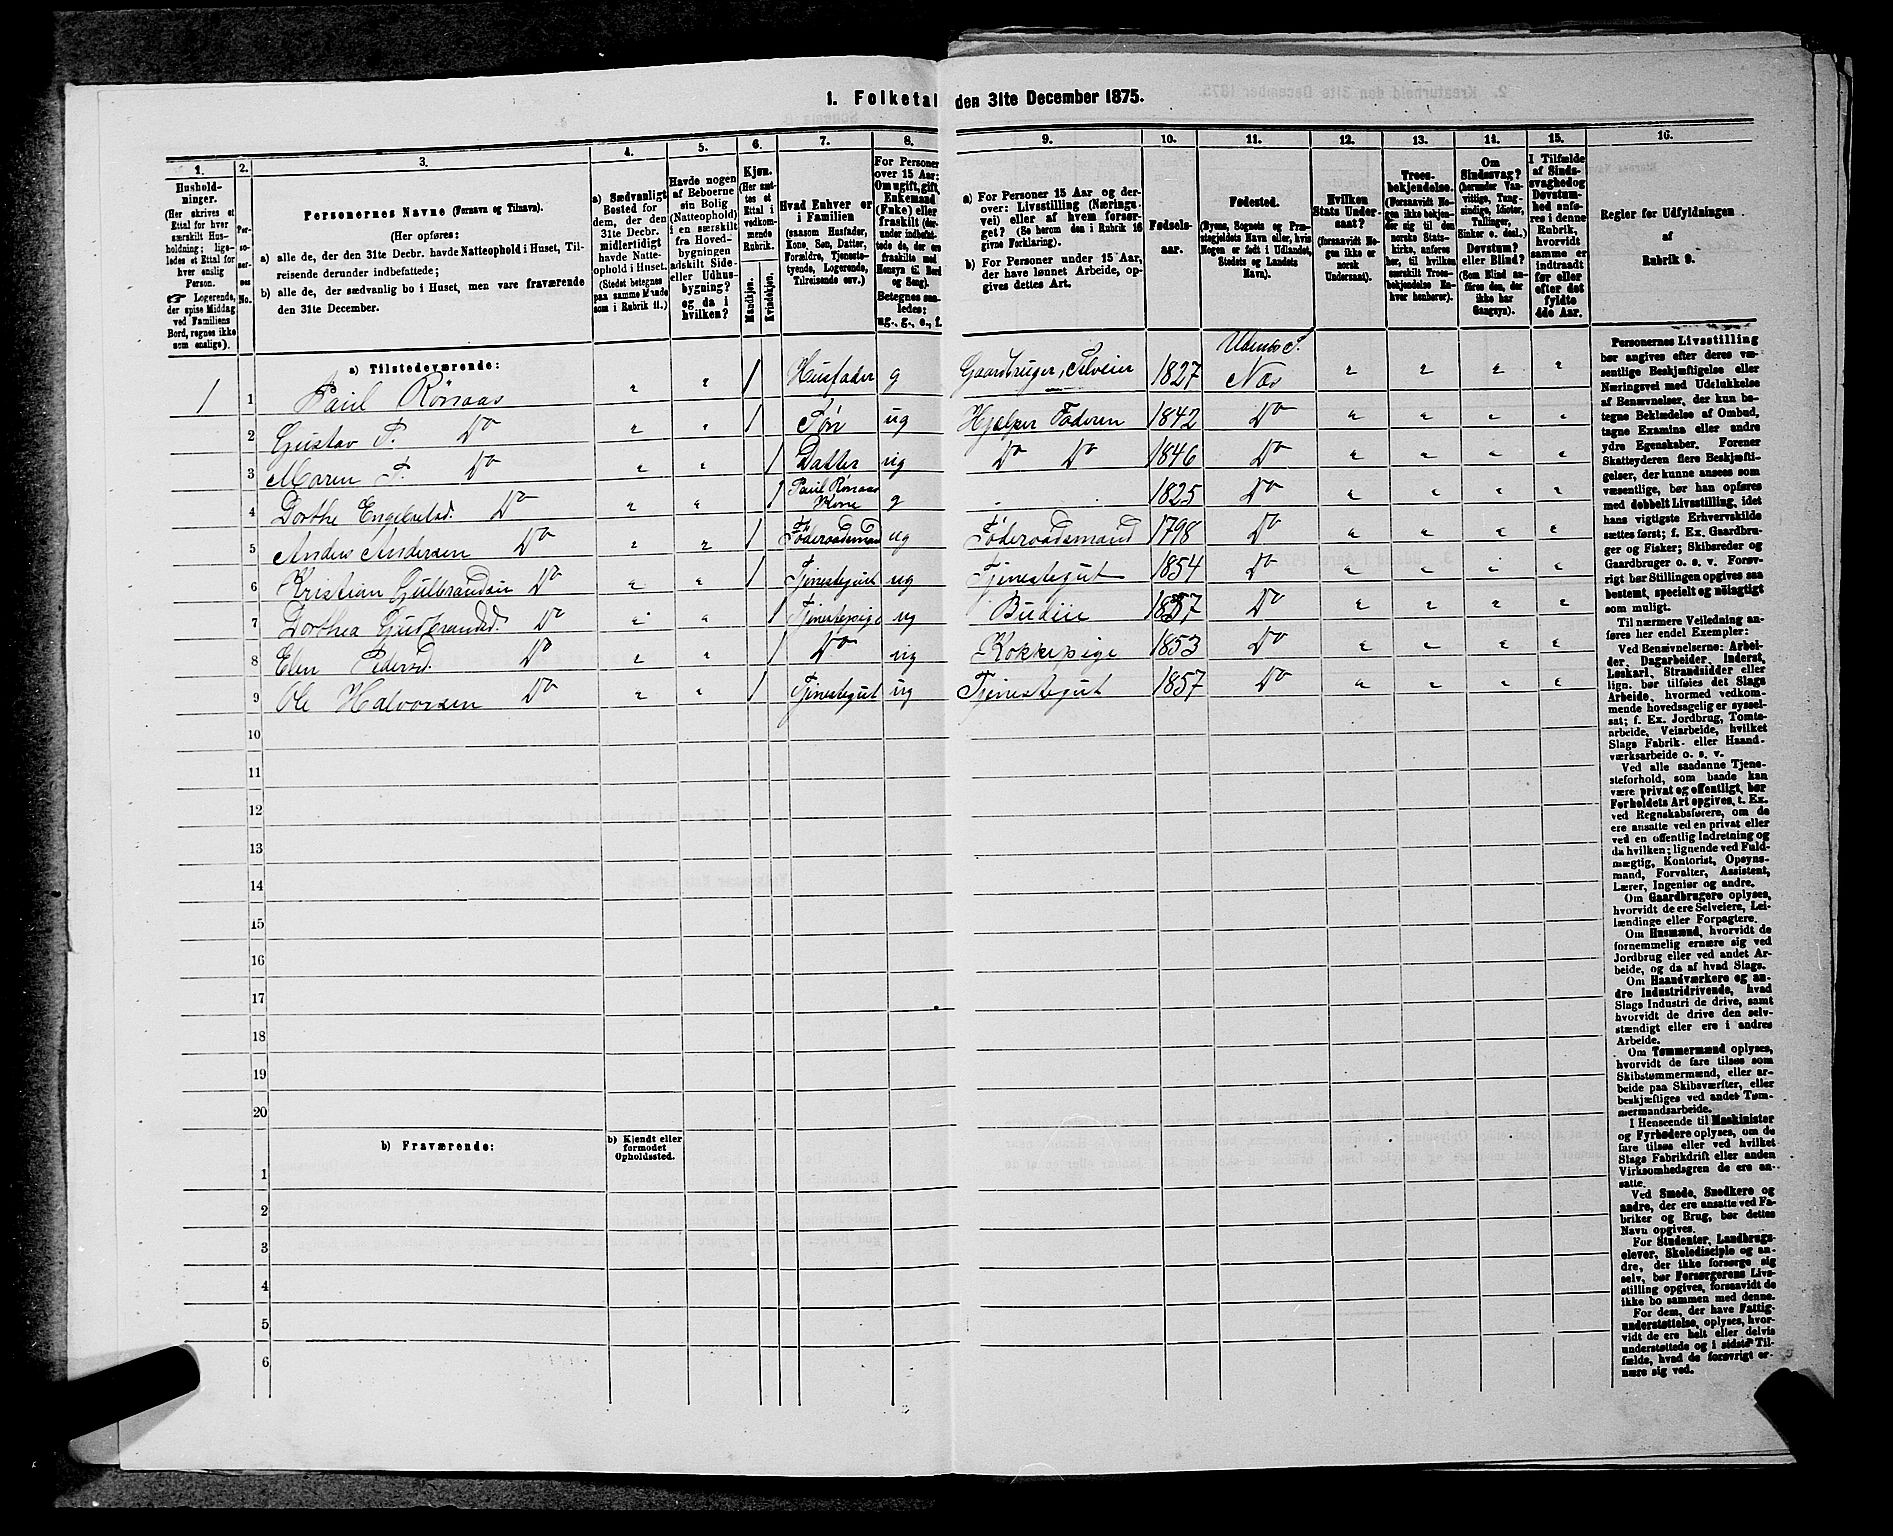 1. Folketal den 31te December 1875.
1. 2. 3. 4. 5. 6. 7. 8. 9. 10. 11. 12. 13. 14. 15. 16.
Hushold-
ninger.
(Her skrives et
Ettal for hver
særskilt Hus-
holdning; lige-
ledes et Ettal for
hver enslig
Person.
☞ Logerende,
der spise Middag
ved Familiens
Bord, regnes ikke
som enslige).
Per-
so-
ner-
nes
No.
Personernes Navne (Fornavn og Tilnavn).
(Her opføres:
a) alle de, der den 31te Decbr. havde Natteophold i Huset, Til-
reisende derunder indbefattede;
b) alle de, der sædvanlig bo i Huset, men vare fraværende
den 31te December.
a) Sædvanligt
Bosted for
dem, der den
31te Decbr.
midlertidigt
havde Natte-
ophold i Huset.
(Stedet betegnes
paa samme Maade
som i Rubrik 11.)
Havde nogen
af Beboerne
sin Bolig
(Natteophold)
i en særskilt
fra Hoved-
bygningen
adskilt Side-
eller Udhus-
bygning?
og da i
hvilken?
Kjøn.
(Her sæt-
tes et
Ettal i
vedkom-
mende
Rubrik.
Mandkjøn.
Kvindekjøn.
Hvad Enhver er
i Familien
(saasom Husfader,
Kone, Søn, Datter,
Forældre, Tjeneste-
tyende, Logerende,
Tilreisende osv.)
For Personer
over 15 Aar:
Om ugift, gift,
Enkemand
(Enke) eller
fraskilt (der-
under indbefat-
tede de, der ere
fraskilte med
Hensyn til Bord
og Seng).
Betegnes saa-
ledes:
ug., g., e., f.
a) For Personer 15 Aar og der-
over: Livsstilling (Nærings-
vei) eller af hvem forsør-
get? (Se herom den i Rubrik 16
givne Forklaring).
b) For Personer under 15 Aar,
der have lønnet Arbeide, op-
gives dettes Art.
Fødsels-
aar.
Fødested.
(Byens, Sognets og Præ-
stegjeldets Navn eller, hvis
Nogen er født i Udlandet,
Stedets og Landets
Navn).
Hvilken
Stats Under-
saat?
(forsaavidt No-
gen ikke er
norsk
Undersaat).
Troes-
bekjendelse.
(Forsaavidt No-
gen ikke bekjen-
der sig til den
norske Stats-
kirke, anføres
her, til hvilken
særskilt Troes-
bekjendelse En-
hver henhører).
Om
Sindssvag?
(herunder Van-
vittige, Tung-
sindige, Idioter,
Tullinger,
Sinker o. desl.)
Døvstum?
eller Blind?
(Som Blind an-
føres den, der
ikke har
Gangsyn).
I Tilfælde
af Sinds-
svaghed og
Døvstum-
hed anfø-
res i denne
Rubrik,
hvorvidt
samme er
indtraadt
før eller
efter det
fyldte
4de Aar.
Regler for Udfyldningen
af
Rubrik 9.
a) Tilstedeværende:
1 1 Paul Rønaas " " 1 Husfader g Gaardbruger, Selveier 1827 Udenes S. Næs " " " "
2 Gustav P. Do " " 1 Søn ug Hjælper Faderen 1842 Do " " " "
3 Maren P. Do " " 1 Datter ug Do Do 1846 Do " " " "
4 Dorthe Engebretsd. Do " " 1 Paul Rønaas Kone g 1825 Do " " " "
5 Anders Andersen Do " " 1 Føderaadsmand ug Føderaadsmand 1798 Do " " " "
6 Kristian Gulbrandsen Do " " 1 Tjenestegut ug Tjenestegut 1854 Do " " " "
7 Dorthea Gudbrandsd. Do " " 1 Tjenestepige ug Budeie 1857 Do " " " "
8 Elen Pedersd. Do " " 1 Do ug Kokkepige 1853 Do " " " "
9 Ole Halvorsen Do " " 1 Tjenestegut ug Tjenestegut 1857 Do " " " "
10
11
12
13
14
15
16
17
18
19
20
b) Fraværende:
b) Kjendt eller
formodet
Opholdssted.
1
2
3
4
5
6
Personernes Livsstilling
bør angives efter deres væ-
sentlige Beskjæftigelse eller
Næringsvei med Udelukkelse
af Benævnelser, der kun be-
tegne Beklædelse af Ombud,
tagne Examina eller andre
ydre Egenskaber. Forener
Skatteyderen flere Beskjæfti-
gelser, der kunne ansees som
væsentlige, bør han opføres
med dobbelt Livsstilling, idet
hans vigtigste Erhvervskilde
sættes først; f. Ex. Gaardbru-
ger og Fisker; Skibsreder og
Gaardbruger o. s. v. Forøv-
rigt bør Stillingen opgives saa
bestemt, specielt og nøiagtigt
som muligt.
Til nærmere Veiledning an-
føres her endel Exempler:
Ved Benævnelserne: Arbei-
der, Dagarbeider, Inderst,
Løskarl, Strandsidder eller
lign. bør tilføies det Slags
Arbeide, hvormed vedkom-
mende hovedsagelig er syssel-
sat; f. Ex. Jordbrug, Tomte-
arbeide, Veiarbeide, hvilket
Slags Fabrik- eller Haand-
værksarbeide o. s. v.
Ved alle saadanne Tjene-
steforhold, som baade kan
være privat og offentligt, bør
Forholdets Art opgives, t. Ex.
ved Regnskabsførere, om de
ere ansatte ved en privat eller
ved en offentlig Indretning og
da hvilken; lignende ved Fuld-
mægtig, Kontorist, Opsyns-
mand, Forvalter, Assistent,
Lærer, Ingeniør og andre.
Om Gaardbrugere oplyses,
hvorvidt de ere Selveiere, Lei-
lændinge eller Forpagtere.
Om Husmænd, hvorvidt de
fornemmelig ernære sig ved
Jordbrug eller ved andet Ar-
beide, og da af hvad Slags.
Om Haandværkere og an-
dre Industridrivende, hvad
Slags Industri de drive, samt
hvorvidt de drive den selv-
stændigt eller ere i andres
Arbeide.
Om Tømmermænd oplyses,
hvorvidt de fare tilsøs som
Skibstømmermænd, eller ar-
beide paa Skibsværfter, eller
beskjæftiges ved andet Tøm-
mermandsarbeide.
I Henseende til Maskinister
og Fyrbødere oplyses, om de
fare tilsøs eller ved hvilket
Slags Fabrikdrift eller anden
Virksomhedsgren de ere an-
satte.
Ved Smede, Snedkere og
andre, der ere ansatte ved Fa-
briker og Brug, bør dettes
Navn opgives.
For Studenter, Landbrugs-
elever, Skoledisciple og an-
dre, der ikke forsørge sig
selv, bør Forsørgerens Livs-
stilling opgives, forsaavidt de
ikke bo sammen med denne.
For dem, der have Fattig-
understøttelse, oplyses, hvor-
vidt de ere helt eller delvis
understøttede og i sidste Til-
fælde, hvad de forøvrigt er-
nære sig ved.